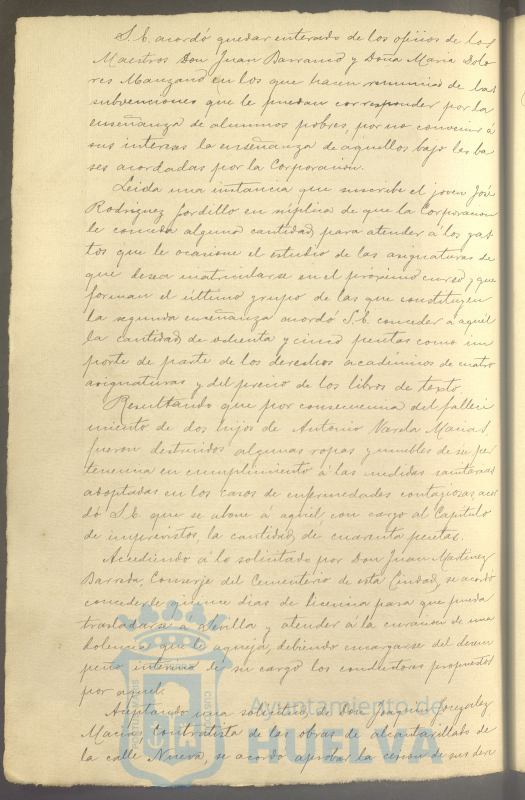 S. E. acordó quedar enterado de los oficios de los
Maestros Don Juan Barranco y Doña Maria Dolo
res Manzano en los que hacen renuncia de las
subvenciones que le puedan corresponder por la
enseñanza de alumnos pobres, por no convenir á
sus intereses la enseñanza de aquellos bajo las ba
ses acordadas por la Corporacion.
Leida una instancia que suscribe el joven José
Rodriguez Gordillo en súplica de que la Corporacion
le conceda alguna cantidad para atender á los gas
tos que le ocasione el estudio de las asignaturas de
que desea matricularse en el próximo curso y que
forman el último grupo de las que constituyen
la segunda enseñanza acordó S. E. conceder á aquel
la cantidad de ochenta y cinco pesetas como im
porte de parte de los derechos académicos de cuatro
asignaturas y del precio de los libros de texto.
Resultando que por consecuencia del falleci
miento de dos hijos de Antonio Varela Macias
fueron destruidos algunas ropas y muebles de su per
tenencia en cumplimiento á las medidas sanitarias
adoptadas en los casos de enfermedades contagiosas, acor
dó S. E. que se abone á aquel con cargo al Capitulo
de imprevistos, la cantidad de cuarenta pesetas.
Accediendo á lo solicitado por Don Juan Martinez
Barreda, Conserje del Cementerio de esta Ciudad, se acordó
concederle quince dias de licencia para que pueda
trasladarse á Sevilla y atender á la curacion de una
dolencia que le aqueja, debiendo encargarse del desem
peño interino de su cargo los conductores propuestos
por aquel.
Aceptando una solicitud de Don Joaquin Gonzalez
Macias, Contratista de las obras de alcantarillado de
la calle Nueva, se acordó aprobar la cesion de sus dere
Ayuntamiento de
HUELVA